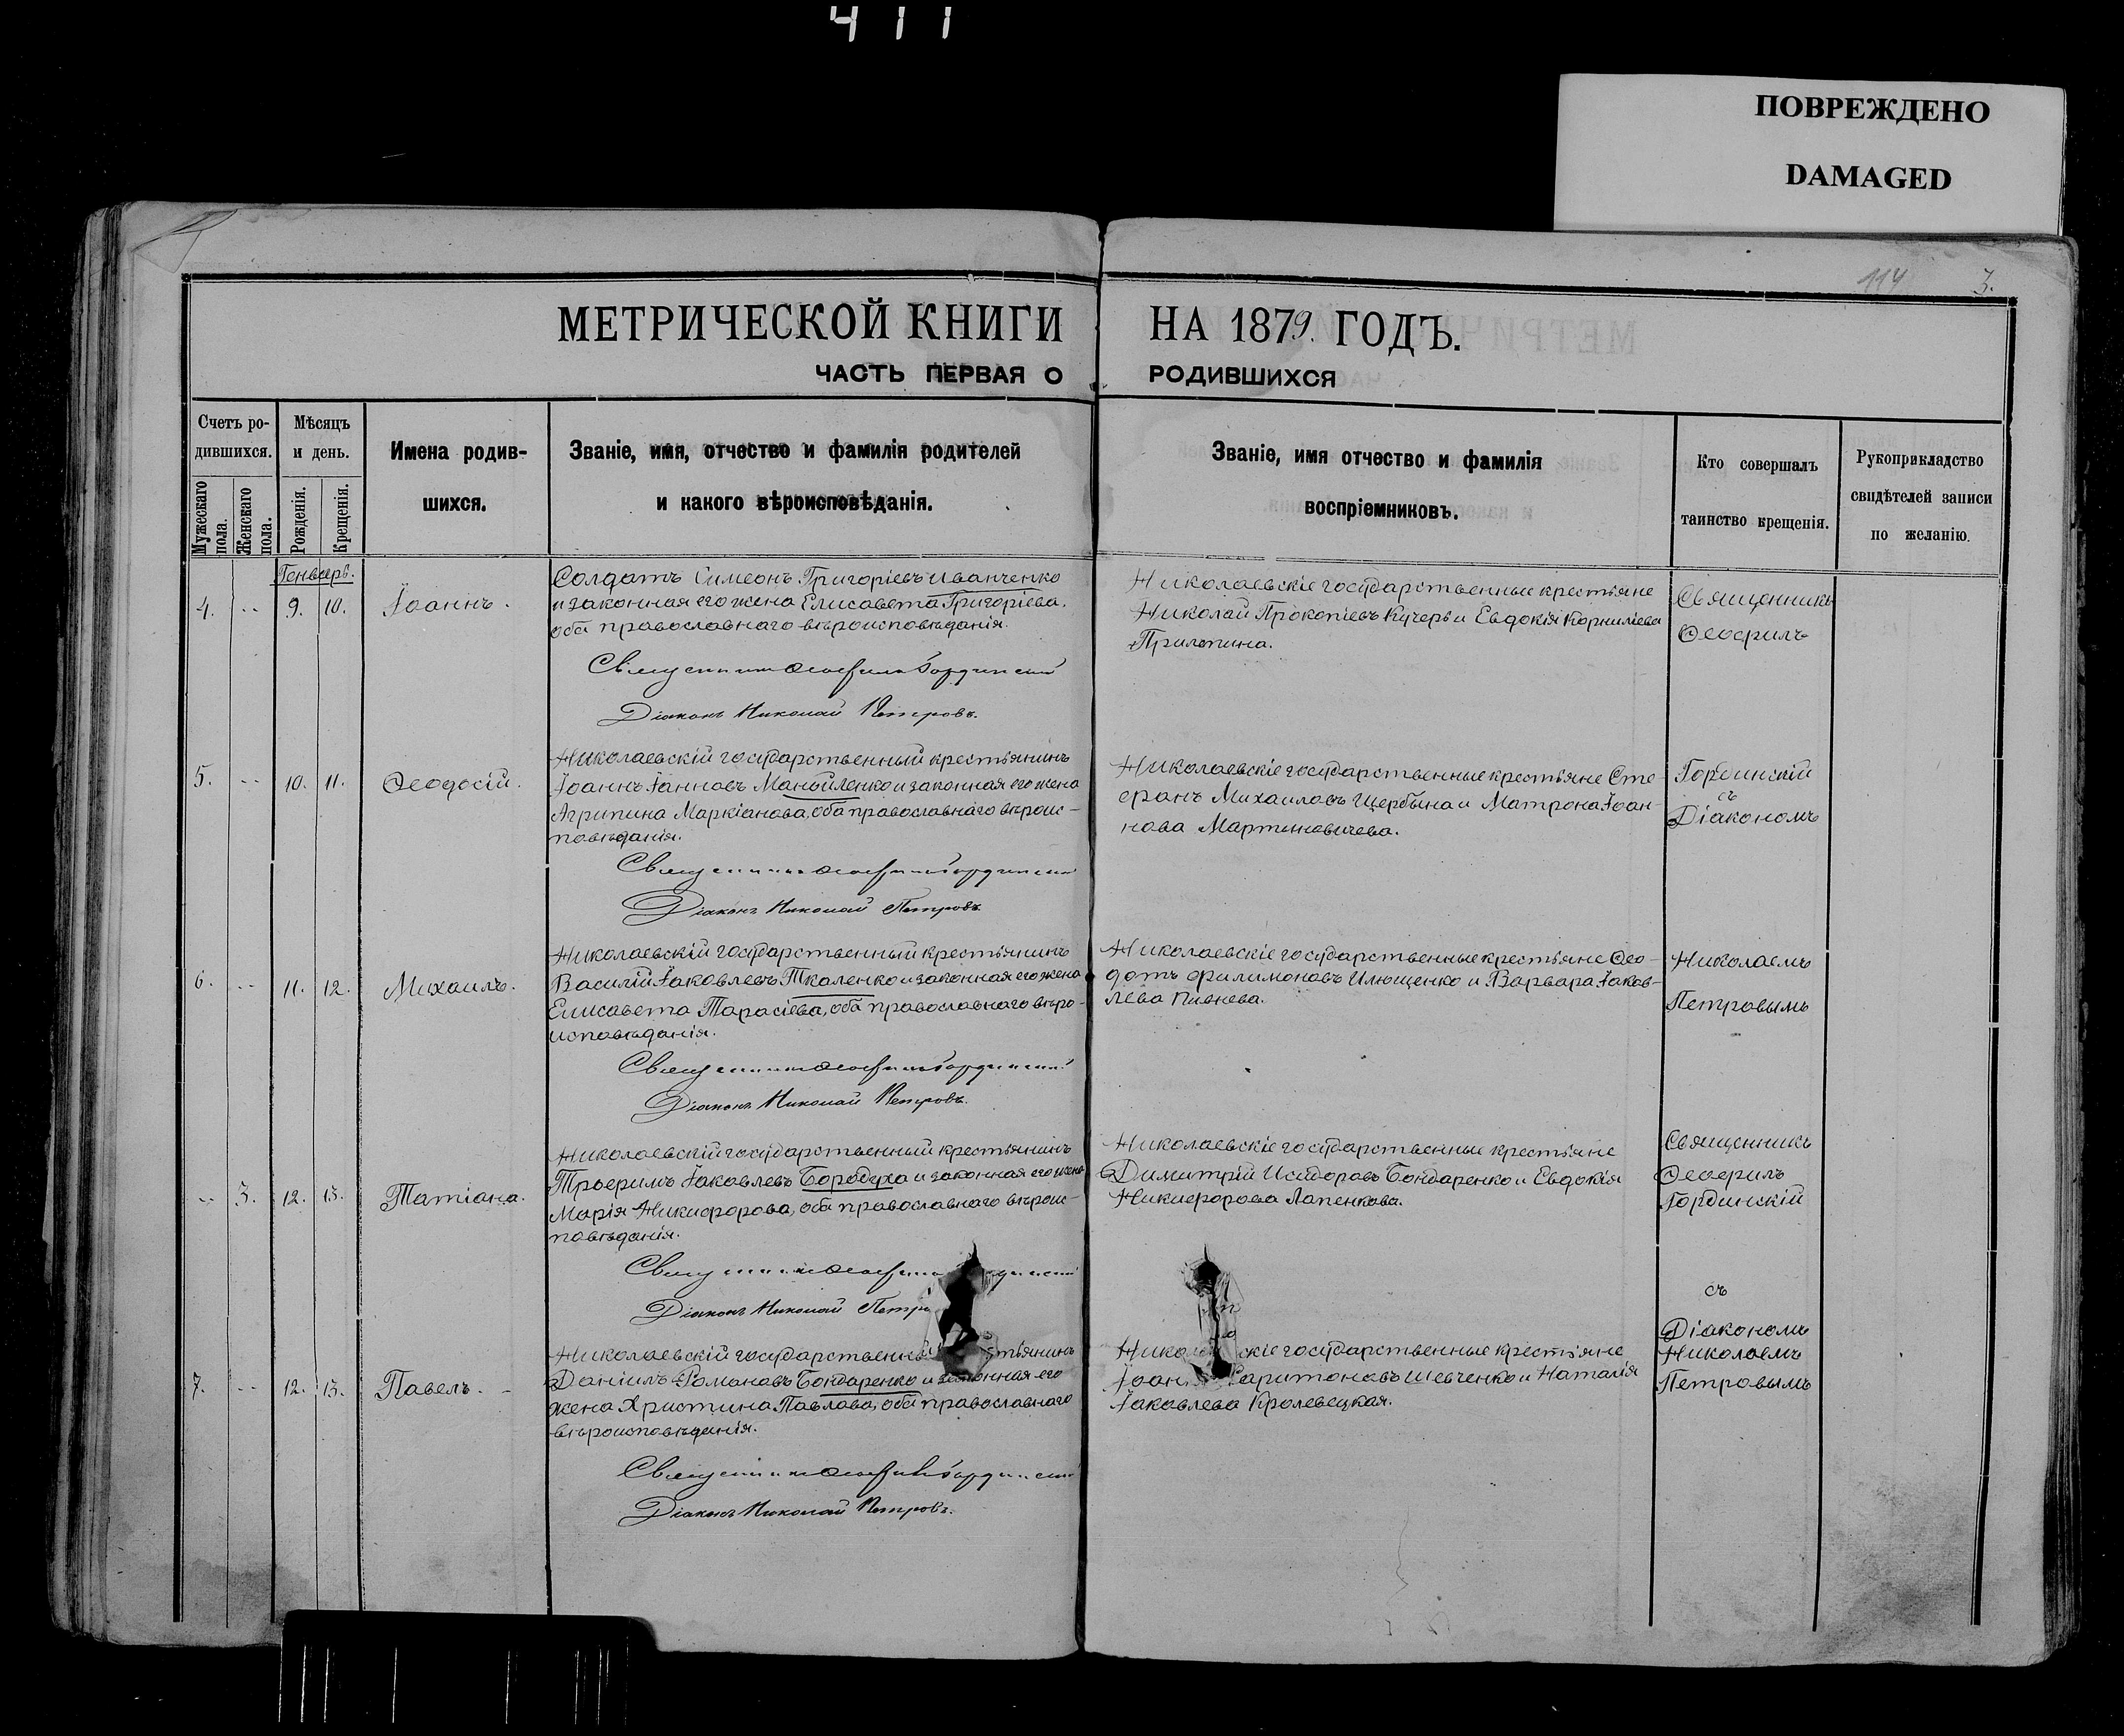 411
ПОВРЕЖДЕНО
DAMAGED
114
3.
МЕТРИЧЕСКОЙ КНИГИ НА 1879. ГОДЪ.
ЧАСТЬ ПЕРВАЯ О РОДИВШИХСЯ
Счетъ ро-
дившихся.
Мужескаго пола.
Женскаго пола.
Мѣсяцъ
и день.
Рожденія.
Крещенія.
Имена родив-
шихся.
Званіе, имя, отчество и фамилія родителей
и какого вѣроисповѣданія.
Званіе, имя отчество и фамилія
воспріемниковъ.
Кто совершалъ
таинство крещенія.
Рукоприкладство
свидѣтелей записи
по желанію.
Генварь.
4. -- 9. 10. Іоаннъ.
Солдатъ Симеонъ Григоріевъ Иванченко
и законная его жена Елисавета Григоріева,
оба православнаго вѣроисповѣданія.
Священникъ Ѳеофилъ Гординскій
Діаконъ Николай Петровъ.
Николаевскіе государственные крестьяне
Николай Прокопіевъ Кучеръ и Евдокія Корниліева
Прилепина.
Священникъ
Ѳеофилъ
5. -- 10. 11. Ѳеодосій.
Николаевскій государственный крестьянинъ
Іоаннъ Іанновъ Манойленко и законная его жена
Агрипина Маркіанова, оба православнаго вѣроис-
повѣданія.
Священникъ Ѳеофилъ Гординскій
Діаконъ Николай Петровъ.
Николаевскіе государственные крестьяне Сте-
фанъ Михаиловъ Щербина и Матрона Іоан-
нова Мартиновичева.
Гординскій
съ
Діакономъ
6. -- 11. 12. Михаилъ.
Николаевскій государственный крестьянинъ
Василій Іаковлевъ Ткаленко и законная его жена
Елисавета Тарасіева, оба православнаго вѣро-
исповѣданія.
Священникъ Ѳеофилъ Гординскій
Діаконъ Николай Петровъ.
Николаевскіе государственные крестьяне Ѳео-
дотъ Филимоновъ Илющенко и Варвара Іаков-
лева Пивнева.
Николаемъ
Петровымъ
-- 3. 12. 13. Татіана.
Николаевскій государственный крестьянинъ
Трофимъ Іаковлевъ Бородуха и законная его жена
Марія Никифорова, оба православнаго вѣроис-
повѣданія.
Священникъ Ѳеофилъ
Діаконъ Николай Петро
Николаевскіе государственные крестьяне
Димитрій Исидоровъ Бондаренко и Евдокія
Никифорова Лапенкова.
Священникъ
Ѳеофилъ
Гординскій
съ
Діакономъ
Николаемъ
Петровымъ
7. -- 12. 13. Павелъ.
Николаевскій государственны стьянинъ
Даніилъ Романовъ Бондаренко и законная его
жена Христина Павлова, оба православнаго
вѣроисповѣданія.
Священникъ Ѳеофилъ Гординскій
Діаконъ Николай Петровъ.
Никола скіе государственные крестьяне
Іоан Харитоновъ Шевченко и Наталія
Іаковлева Кролевецкая.